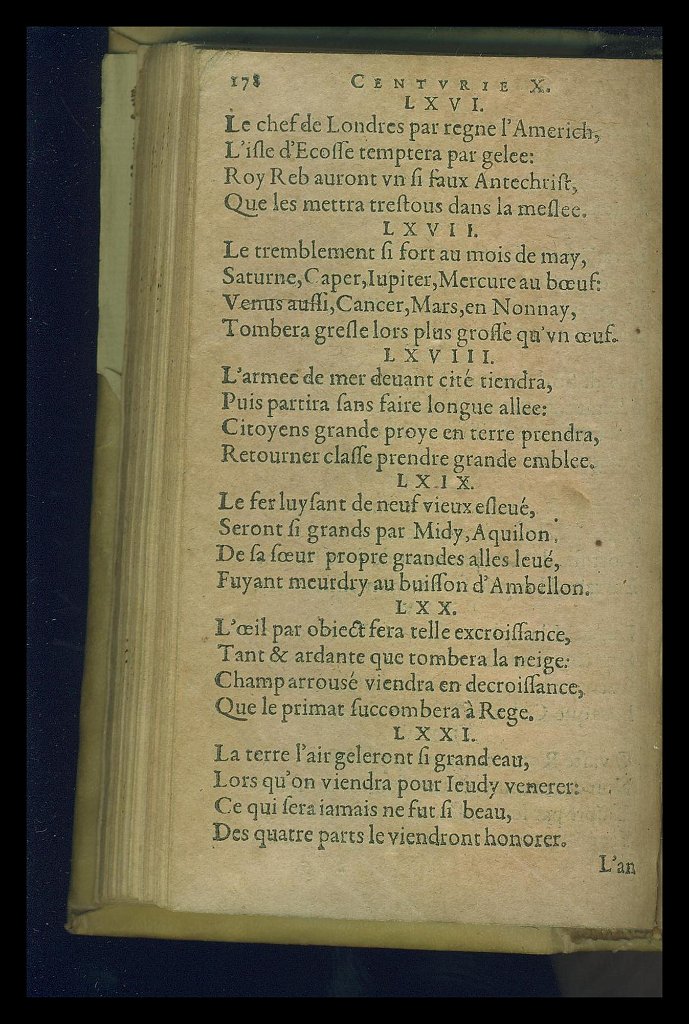 178 CENTVRIE X.
LXVI.
Le chef de Londres par regne l'Americh,
L'iſle d'Ecoſſe temptera par gelee:
Roy Reb auront vn ſi faux Antechriſt,
Que les mettra treſtous dans la meſlee.
LXVII.
Le tremblement ſi fort au mois de may,
Saturne, Caper, Iupiter, Mercure au bœuf:
Venus auſſi, Cancer, Mars, en Nonnay,
Tombera greſſe lors plus groſſe qu'vn œuf.
LXVIII.
L'armee de mer deuant cité tiendra,
Puis partira ſans faire longue allee:
Citoyens grande proye en terre prendra,
Retourner claſſe prendre grande emblee.
LXIX.
Le fer luyſant de neuf vieux eſleué,
Seront ſi grands par Midy, Aquilon
De ſa ſœur propre grandes alles leué,
Fuyant meurdry au buiſſon d'Ambellon.
LXX.
L'œil par obiect fera telle excroiſſance,
Tant & ardante que tombera la neige:
Champ arrousé viendra en decroiſſance,
Que le primat ſuccombera à Rege.
LXXI.
La terre l'air geleront ſi grand eau,
Lors qu'on viendra pour Ieudy venerer:
Ce qui ſera iamais ne fut ſi beau,
Des quatre parts le viendront honorer.
L'an